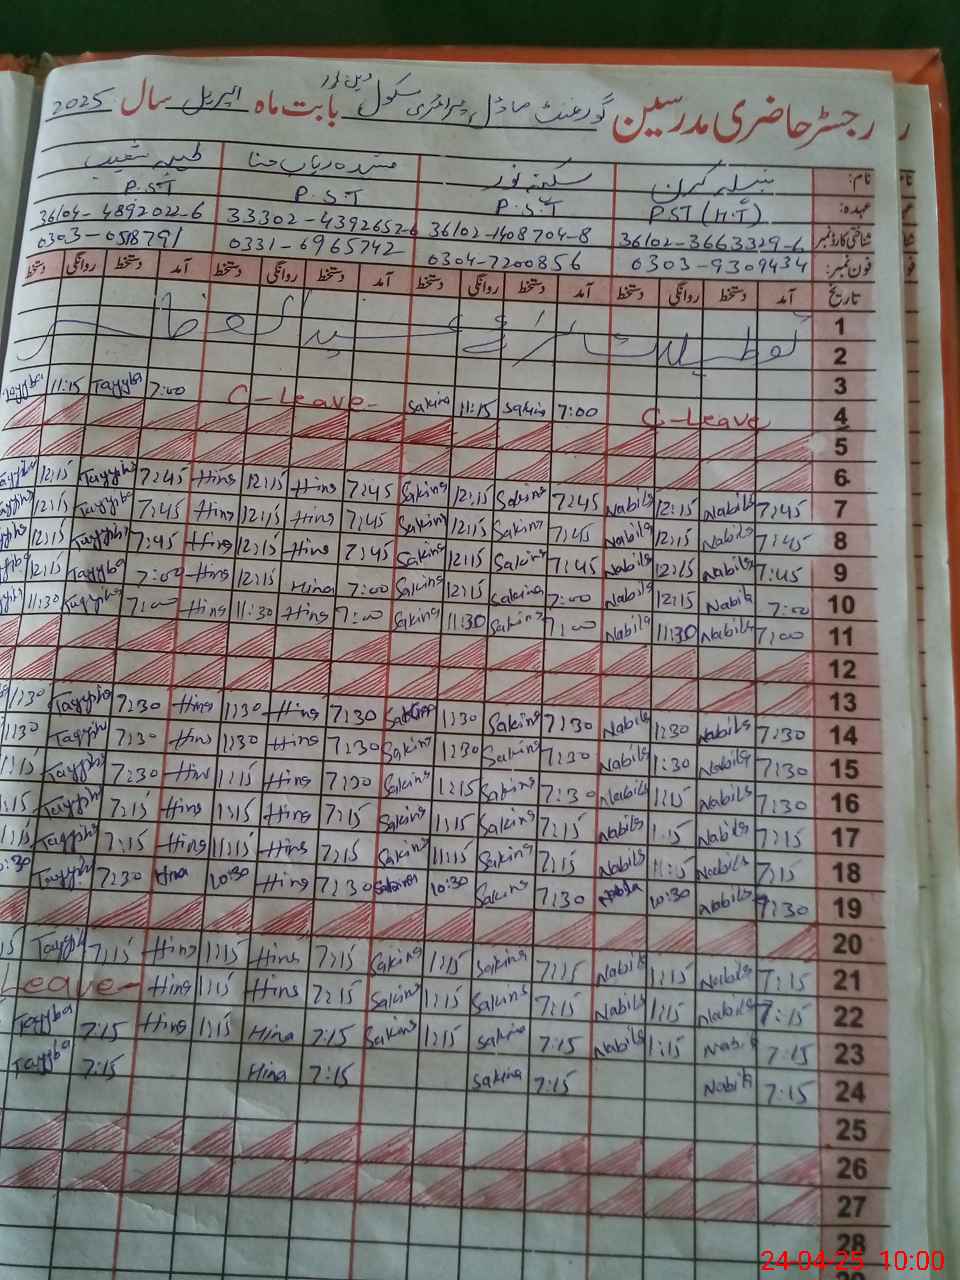 رجسٹر حاضری مدرسین گورنمنٹ ماڈل پرائمری سکول بابت ماہ اپریل سال 2025
نام: نبیلہ کرن سکینہ نور طیبہ شعیب
عہدہ: PST (H.T) P.S.T P.S.T P.S.T
شناختی کارڈ نمبر 36102-3663329-6 36102-1408704-8 33302-4392652-6 36104-4892022-6
فون نمبر: 0303-9309434 0304-7200856 0331-6965742 0303-0518791
تاریخ آمد دستخط روانگی دستخط آمد دستخط روانگی دستخط آمد دستخط روانگی دستخط آمد دستخط روانگی دستخط
1
2
3
4 C-Leave 7:00 Sakina 11:15 Sakina C-Leave 7:00 Tayyba 11:15 Tayyba
5
6
7 7:45 Nabila 12:15 Nabila 7:45 Sakina 12:15 Sakina 7:45 Hina 12:15 Hina 7:45 Tayyba 12:15 Tayyba
8 7:45 Nabila 12:15 Nabila 7:45 Sakina 12:15 Sakina 7:45 Hina 12:15 Hina 7:45 Tayyba 12:15
9 7:45 Nabila 12:15 Nabila 7:45 Sakina 12:15 Sakina 7:45 Hina 12:15 Hina 7:45 Tayyba 12:15
10 7:00 Nabila 12:15 Nabila 7:00 Sakina 12:15 Sakina 7:00 Hina 12:15 Hina 7:00 Tayyba 12:15
11 7:00 Nabila 11:30 Nabila 7:00 Sakina 11:30 Sakina 7:00 Hina 11:30 Hina 7:00 Tayyba 11:30
12
13
14 7:30 Nabila 1:30 Nabila 7:30 Sakina 1:30 Sakina 7:30 Hina 1:30 Hina 7:30 Tayyba 1:30
15 7:30 Nabila 1:30 Nabila 7:30 Sakina 1:30 Sakina 7:30 Hina 1:30 Hina 7:30 Tayyba 1:30
16 7:30 Nabila 1:15 Nabila 7:30 Sakina 1:15 Sakina 7:30 Hina 1:15 Hina 7:30 Tayyba 1:15
17 7:15 Nabila 1:15 Nabila 7:15 Sakina 1:15 Sakina 7:15 Hina 1:15 Hina 7:15 Tayyba 1:15
18 7:15 Nabila 11:15 Nabila 7:15 Sakina 11:15 Sakina 7:15 Hina 11:15 Hina 7:15 Tayyba 11:15
19 7:30 Nabila 10:30 Nabila 7:30 Sakina 10:30 Sakina 7:30 Hina 10:30 Hina 7:30 Tayyba 10:30
20
21 7:15 Nabila 1:15 Nabila 7:15 Sakina 1:15 Sakina 7:15 Hina 1:15 Hina 7:15 Tayyba
22 7:15 Nabila 1:15 Nabila 7:15 Sakina 1:15 Sakina 7:15 Hina 1:15 Hina Leave
23 7:15 Nabila 1:15 Nabila 7:15 Sakina 1:15 Sakina 7:15 Hina 1:15 Hina 7:15 Tayyba
24 7:15 Nabila 7:15 Sakina 7:15 Hina 7:15 Tayyba
25
26
27
28
24-04-25 10:00